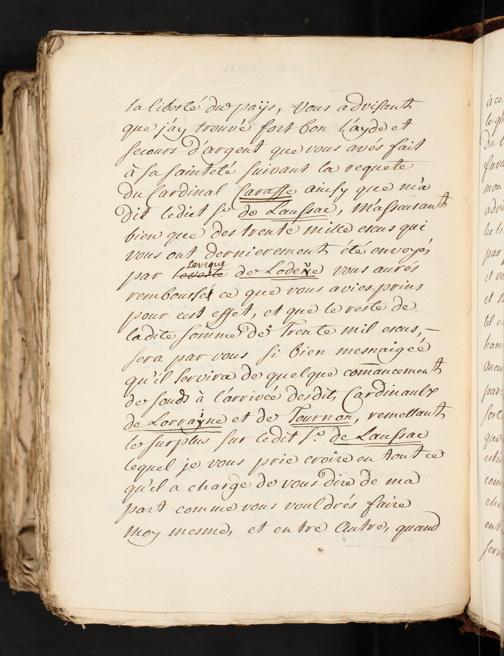 la liberté du païs, vous advisant
que j'ay trouvé fort bon l'ayde et
secours d'argent que vous avés fait
à sa sainteté suivant la requete
du Cardinal Caraffe ainsy que m'a
dit ledict Sr. de Laussac, m'assurant
bien que des trente mille escus qui
vous ont dernierement été envoyés
par l'eveque de Lodeve vous aurés
remboursé ce que vous aviés prins
pour cest effet, et que le reste de
ladite somme de Trente mil escus,
sera par vous si bien mesnaigéé
qu'il servira de quelque comancement
de fonds à l'arrivée desdits Cardinaulx
de Lorrayne et de Tournon, remettant
le surplus sur ledit Sr. de Laussac
lequel je vous prie croire en tout ce
qu'il a charge de vous dire de ma
part comme vous vouldrés faire
moy mesme, et entre autre, quand